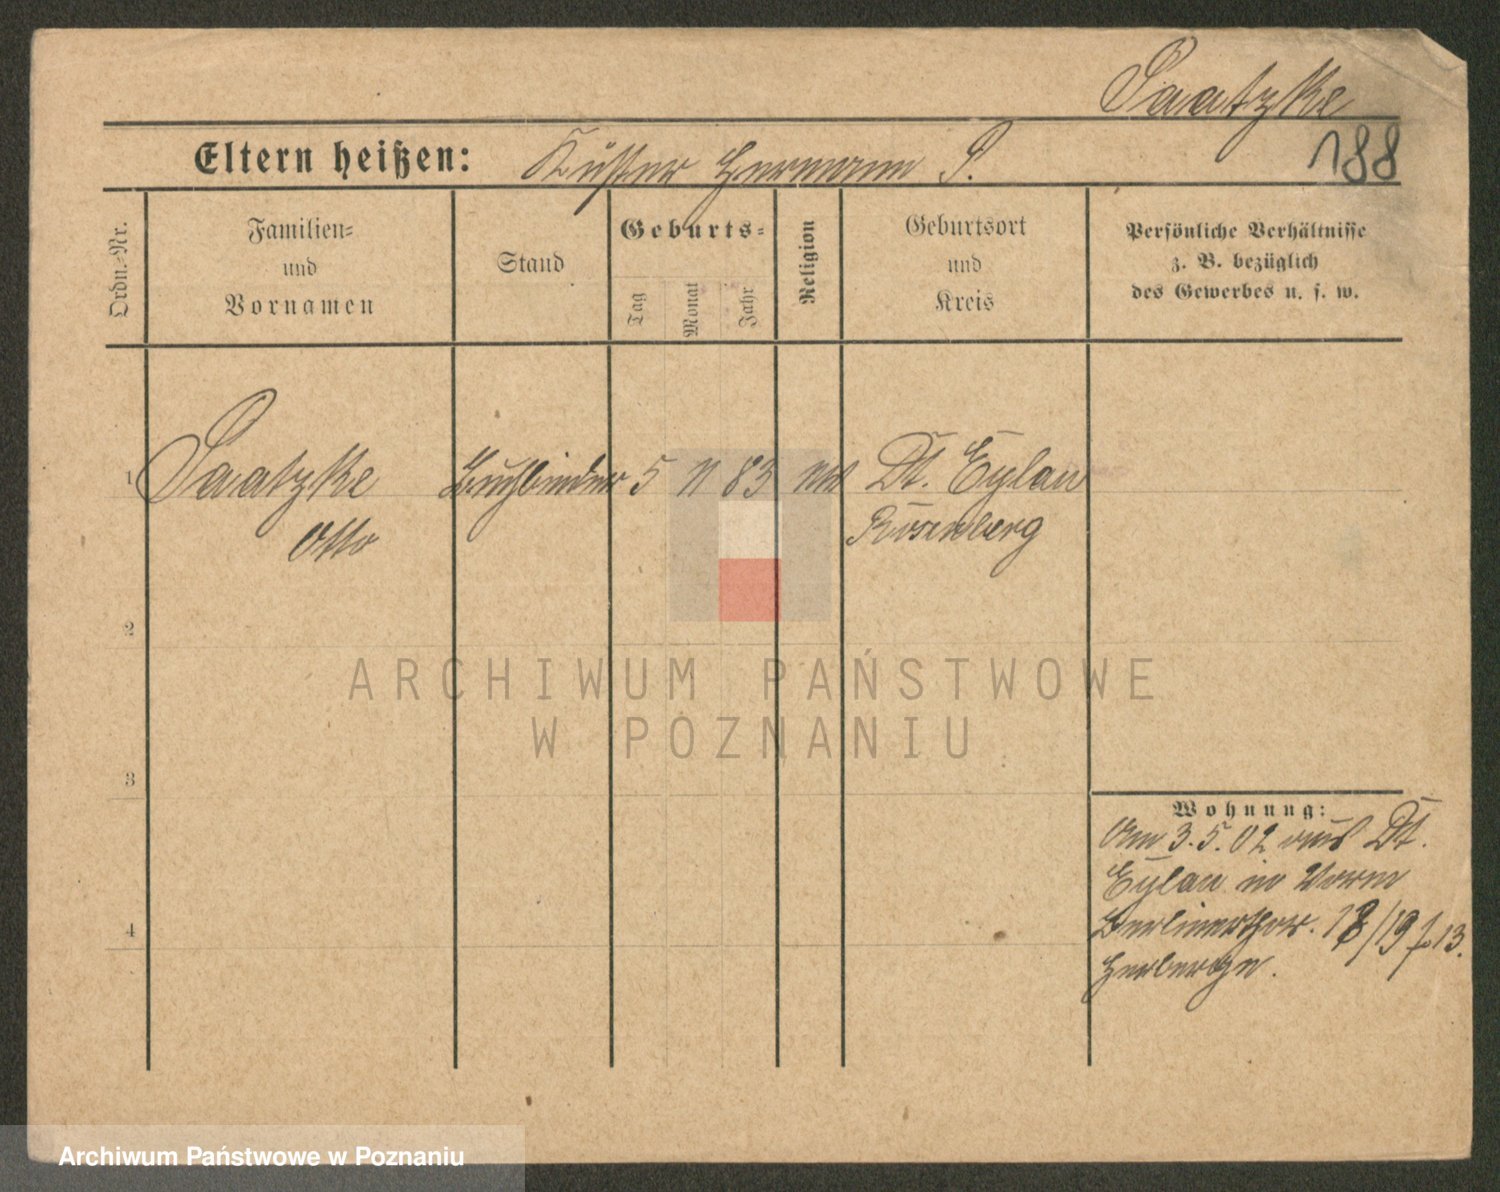 Saatzke
188
Eltern heißen: Küster Hermann S.
Ordn.-Nr.
Familien-
und
Vornamen
Stand
Geburts-
Tag
Monat
Jahr
Religion
Geburtsort
und
Kreis
Persönliche Verhältnisse
z. B. bezüglich
des Gewerbes u. s. w.
1 Saatzke Buchbinder 5 11 83 Dt. Eylau
Otto Rosenberg
2
3
4
Wohnung:
Am 3.5.02 aus Dt.
Eylau in
Berlinerthor. 18/19 f. 13.
Herberge.
ARCHIWUM PAŃSTWOWE
W POZNANIU
Archiwum Państwowe w Poznaniu